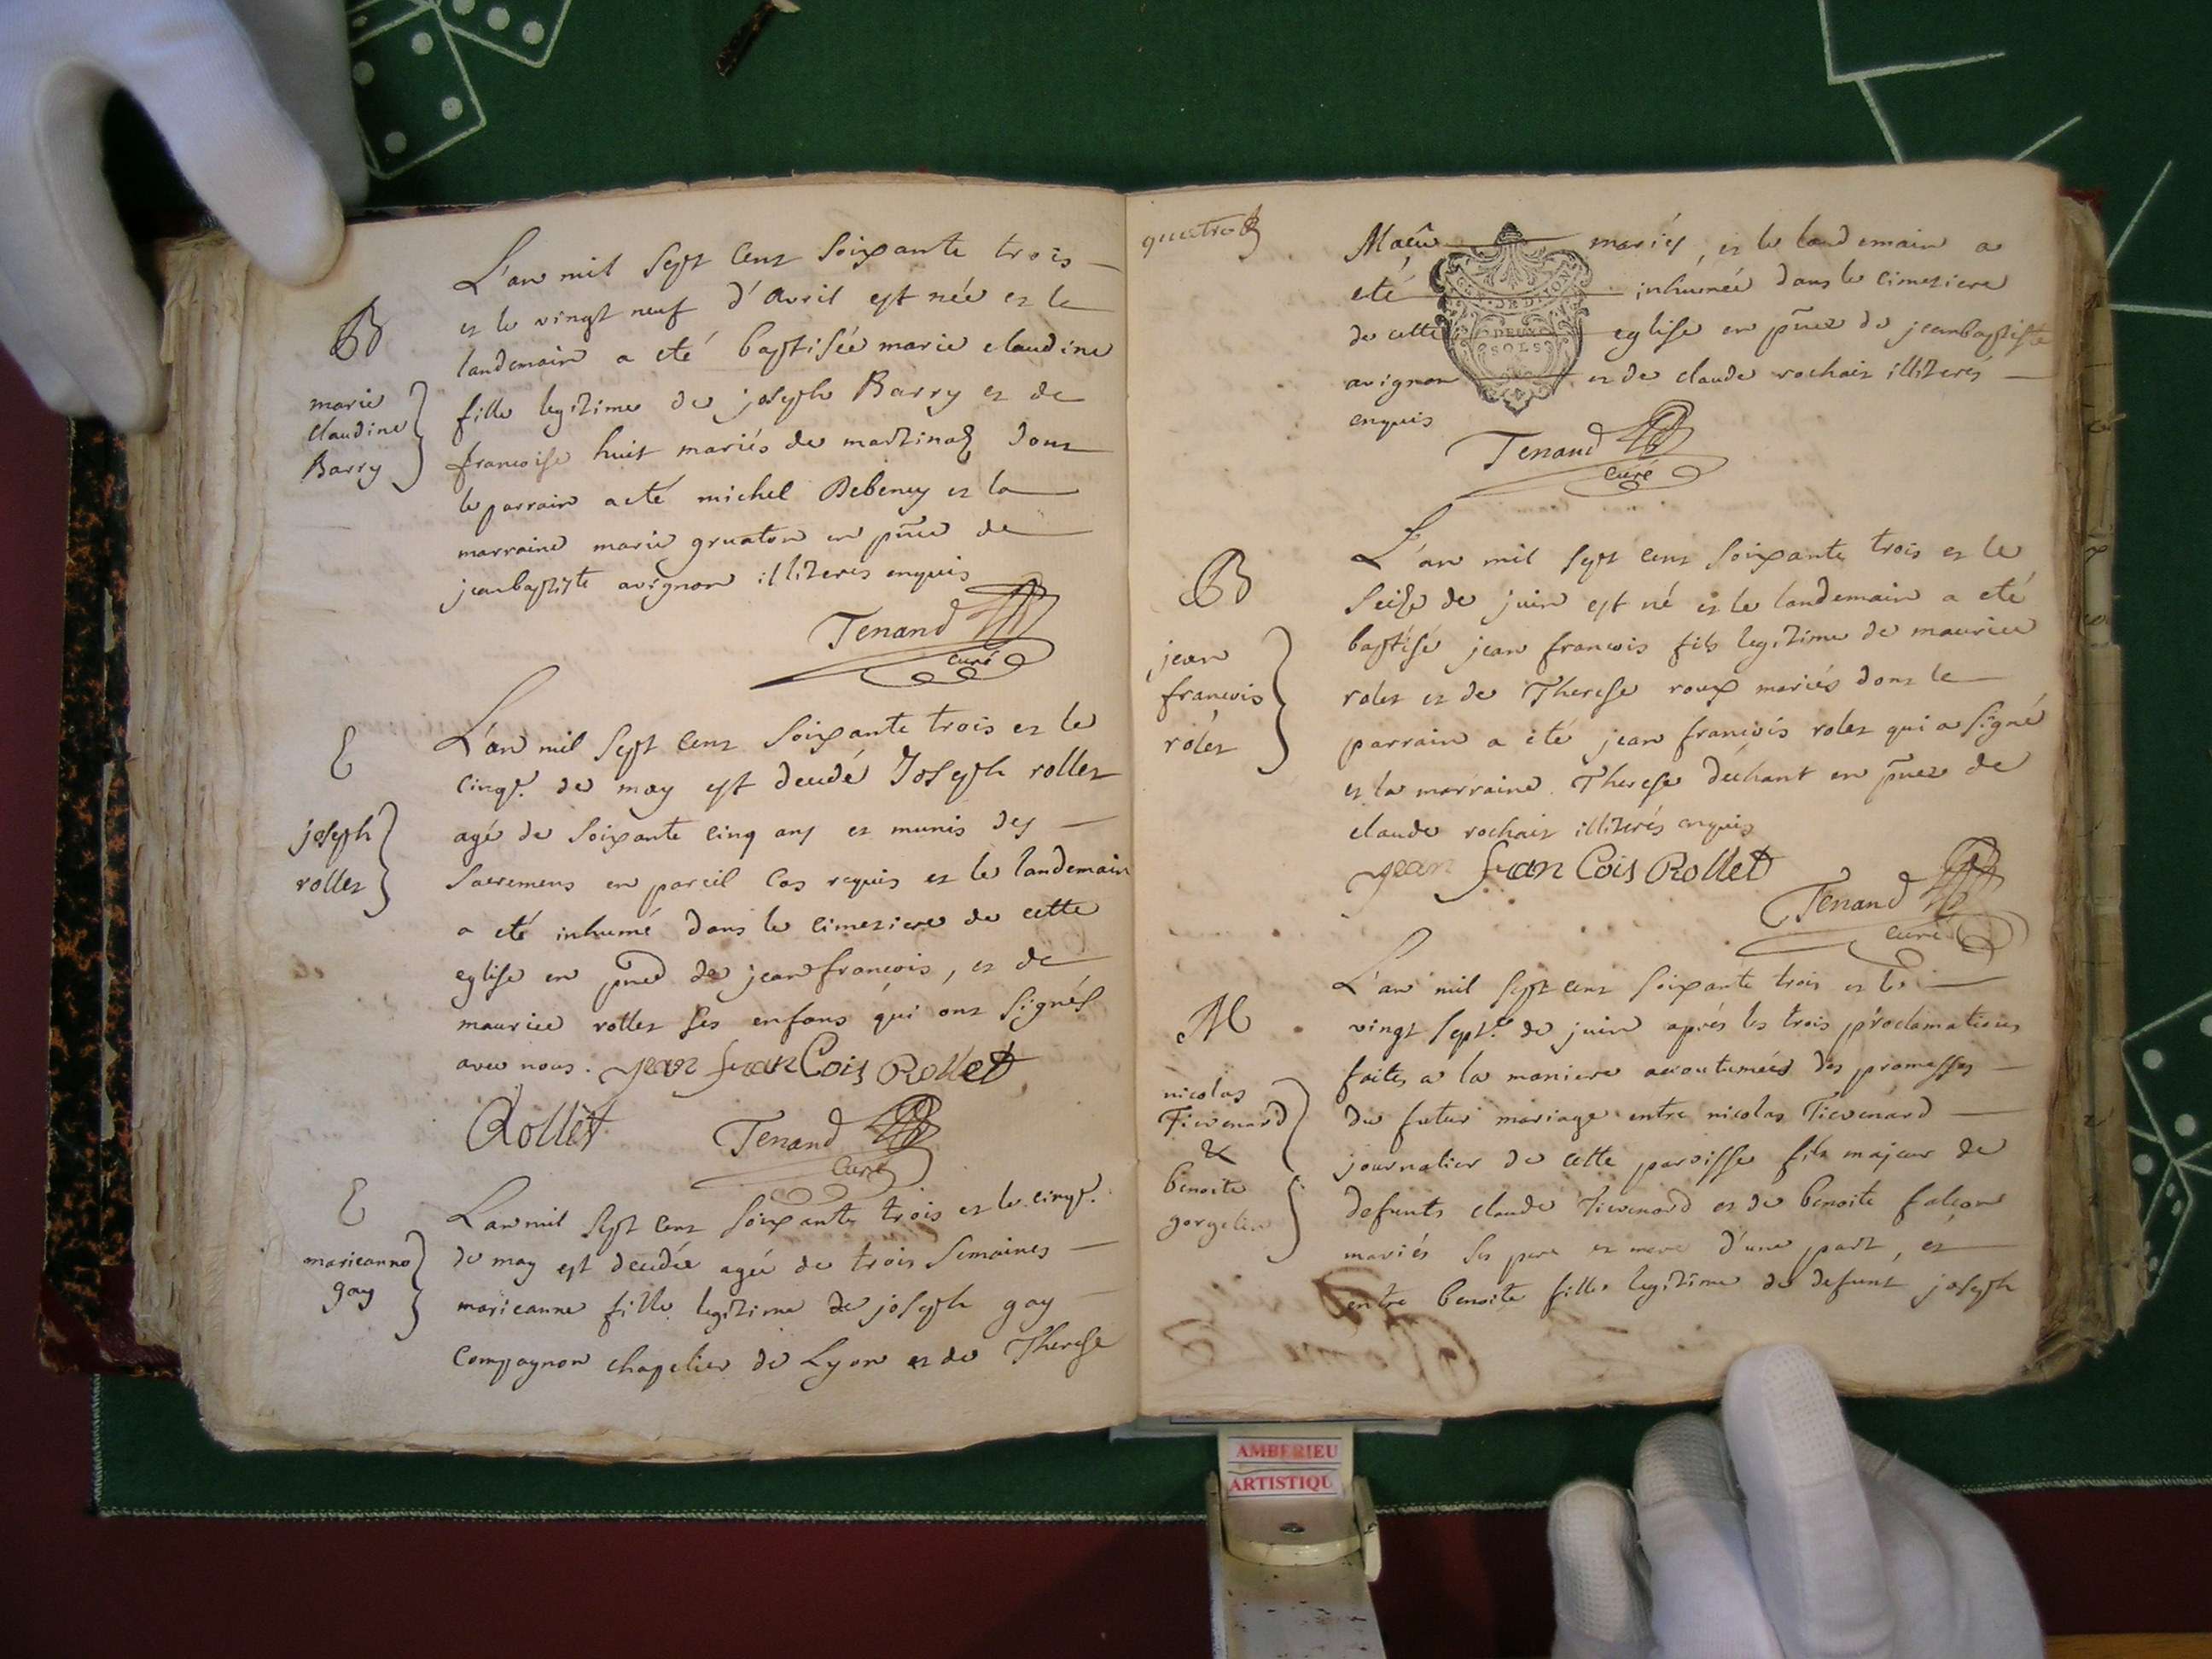 L'an mil sept cent soixante trois
et le vingt neuf d'avril est née et le
landemain a eté baptisée marie claudine
fille legitime de joseph Barry et de
francoise huit mariés de martinaz dont
le parrain a eté michel Debeney et la
marraine marie gruaton en pnce de
jeanbaptiste avignon illiterés enquis
Tenand
curé
B
marie
claudine
Barry
L'an mil sept cent soixante trois et le
cinqe. de may est decedé Joseph rollet
agé de soixante cinq ans et munis des
sacremens en pareil cas requis et le landemain
a eté inhumé dans le cimetiere de cette
eglise en pnce de jean francois, et de
maurice rollet ses enfans qui ont signés
avec nous. jean franCois Rollet
Rollet Tenand
curé
E
joseph
rollet
L'an mil sept cent soixante trois et le cinqe.
de may est decedée agée de trois semaines
marieanne fille legitime de joseph gay
compagnon chapelier de Lyon et de Therese
E
marieanne
gay
quatre
mariés, et le landemain a
eté inhumée dans le cimetiere
de cette eglise en pnce de jeanbaptiste
avignon et de claude rochait illiterés
enquis
DEUX
SOLS
Tenand
curé
L'an mil sept cent soixante trois et le
seize de juin est né et le landemain a eté
baptisé jean francois fils legitime de maurice
rolet et de Therese roux mariés dont le
parrain a eté jean francois rolet qui a signé
et la marraine Therese dechant en pnce de
claude rochait illiterés enquis
jean franCois Rollet
Tenand
curé
B
jean
francois
rolet
L'an mil sept cent soixante trois et le
vingt septe. de juin aprés les trois proclamations
faites a la maniere accoutumées des promesses
du futur mariage entre nicolas Tievenard
journalier de cette paroisse fils majeur de
defunts claude Tievenard et de benoite falcon
mariés ses pere et mere d'une part, et
entre benoite fille legitime de defunt joseph
M
nicolas
Tievenard
&
benoite
gorgelin
AMBERIEU
ARTISTIQU